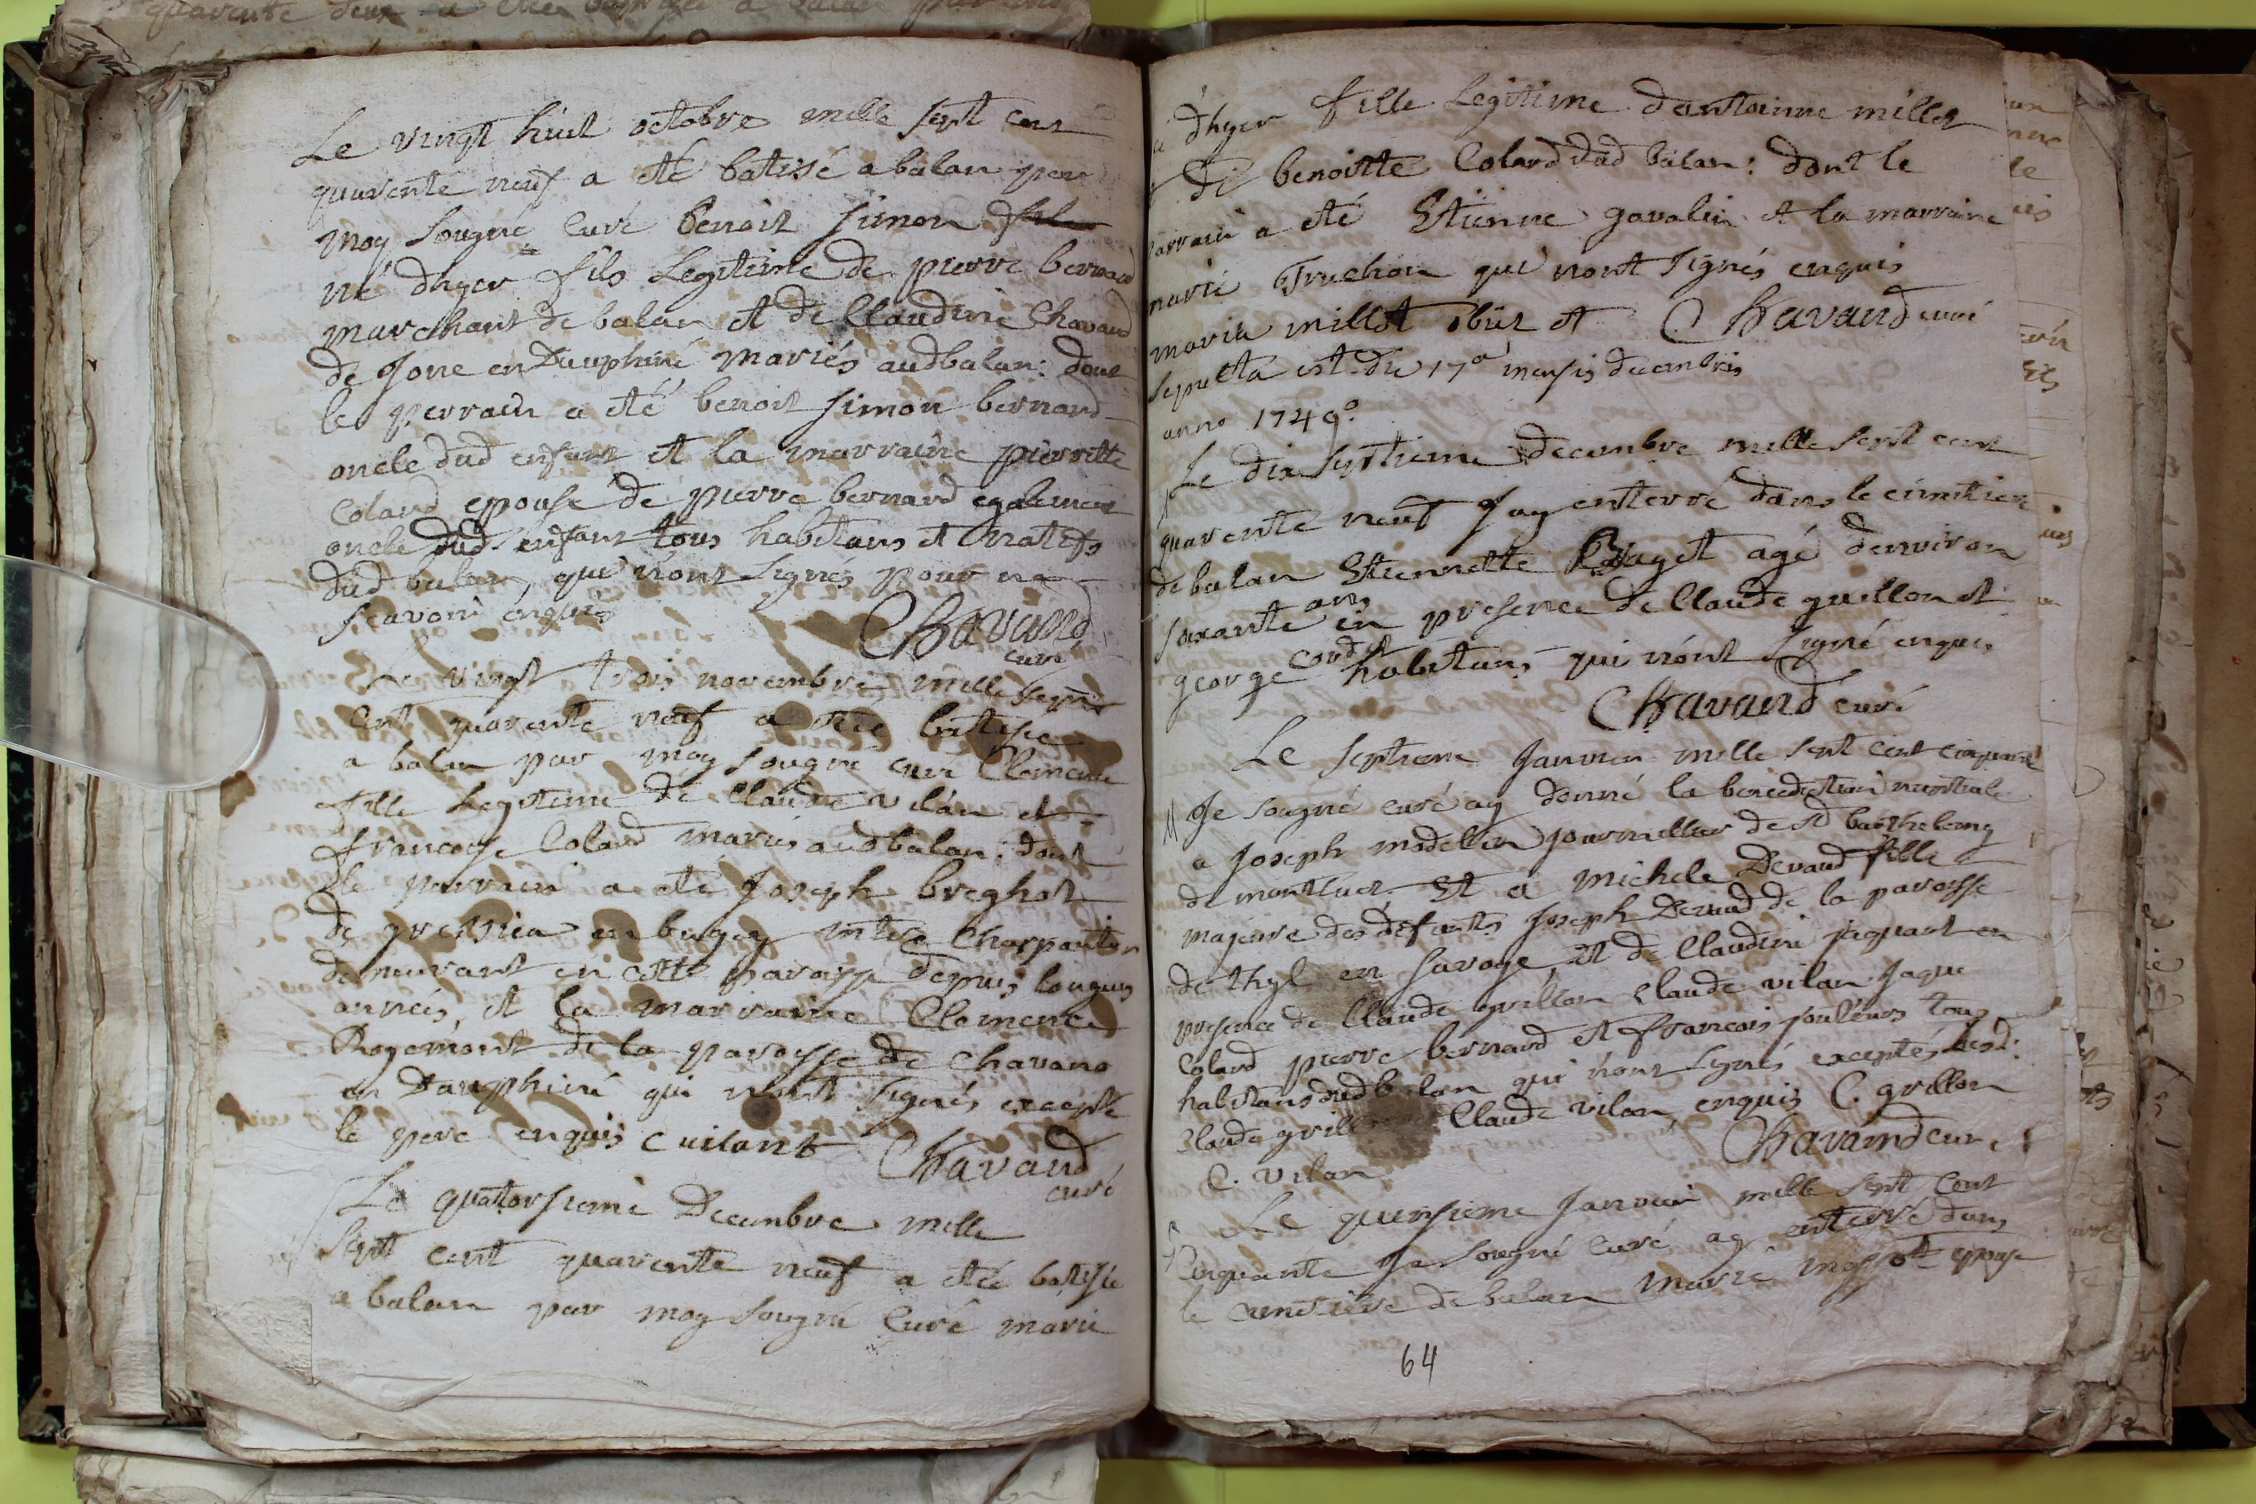 Le vingt huit octobre mille sept cent
quarente neuf a été batisé a balan par
moy sougné curé benoit simon
né dhyer fils legitime de pierre bernard
marchant de balan et de Claudine Chavand
de Jone en Dauphiné mariés audbalan: dont
le parrain a été benoit simon bernard
oncle dud enfant et la marraine pierrette
Coland epouse de pierre bernard egalement
oncle dud enfant tous habitans et natifs
dud balan, qui nont signés pour ne
scavoir enquis
Chavand
curé
Le vingt trois novembre mille sept
cent quarente neuf a été batisée
a balan par moy sougné curé Clemence
fille legitime de Claude vilan et
francoise Coland mariés audbalan: dont
le parrain a été Joseph breghot
de en bugey Charpentier
demeurant en cette paroisse depuis longues
années, et la marraine Clemence
Rogemont de la paroisse de Chavano
en Dauphiné qui nont signés excepté
le pere enquis C vilant Chavand
curé
Le quatorsieme Decembre mille
sept cent quarente neuf a été batisée
a balan par moy sougné Curé marie
dhyer fille legitime dantoinne millet
de benoitte Coland dud balan: dont le
parrain a été Etienne gavalin et la marraine
marie Truchon qui nont signés enquis
maria millet obiit et Chavand curé
sepulta est die 17a mensis decembris
anno 1749o.
Le dix septieme decembre mille sept cent
quarente neuf Jay enterré dans le cimitiere
de balan Etiennette agé denviron
soixante ans en presence de Claude guillon et
george cordet habitans qui nont signé enquis
Chavand curé
Le septieme Janvier mille sept cent cinquante
Je sougné curé ay donné la benediction nuptiale
a Joseph modellin journallier de st barthelemy
de montluel Et a michele Devaud fille
majeure des defunts Joseph Devaud de la paroisse
de thyl en savoye, et de Claudine jaquart en
presence de Claude grillon Claude vilan Jaque
Coland pierre bernard et francois tous
habitans dud balan qui nont signés exceptés lesd:
Claude grillon Claude vilan enquis C. grillon
C. vilan Chavand curé
Le quinsieme Janvier mille sept cent
Cinquante Je sougné Curé ay enterré dans
le cimetiere de balan marie epouse
64